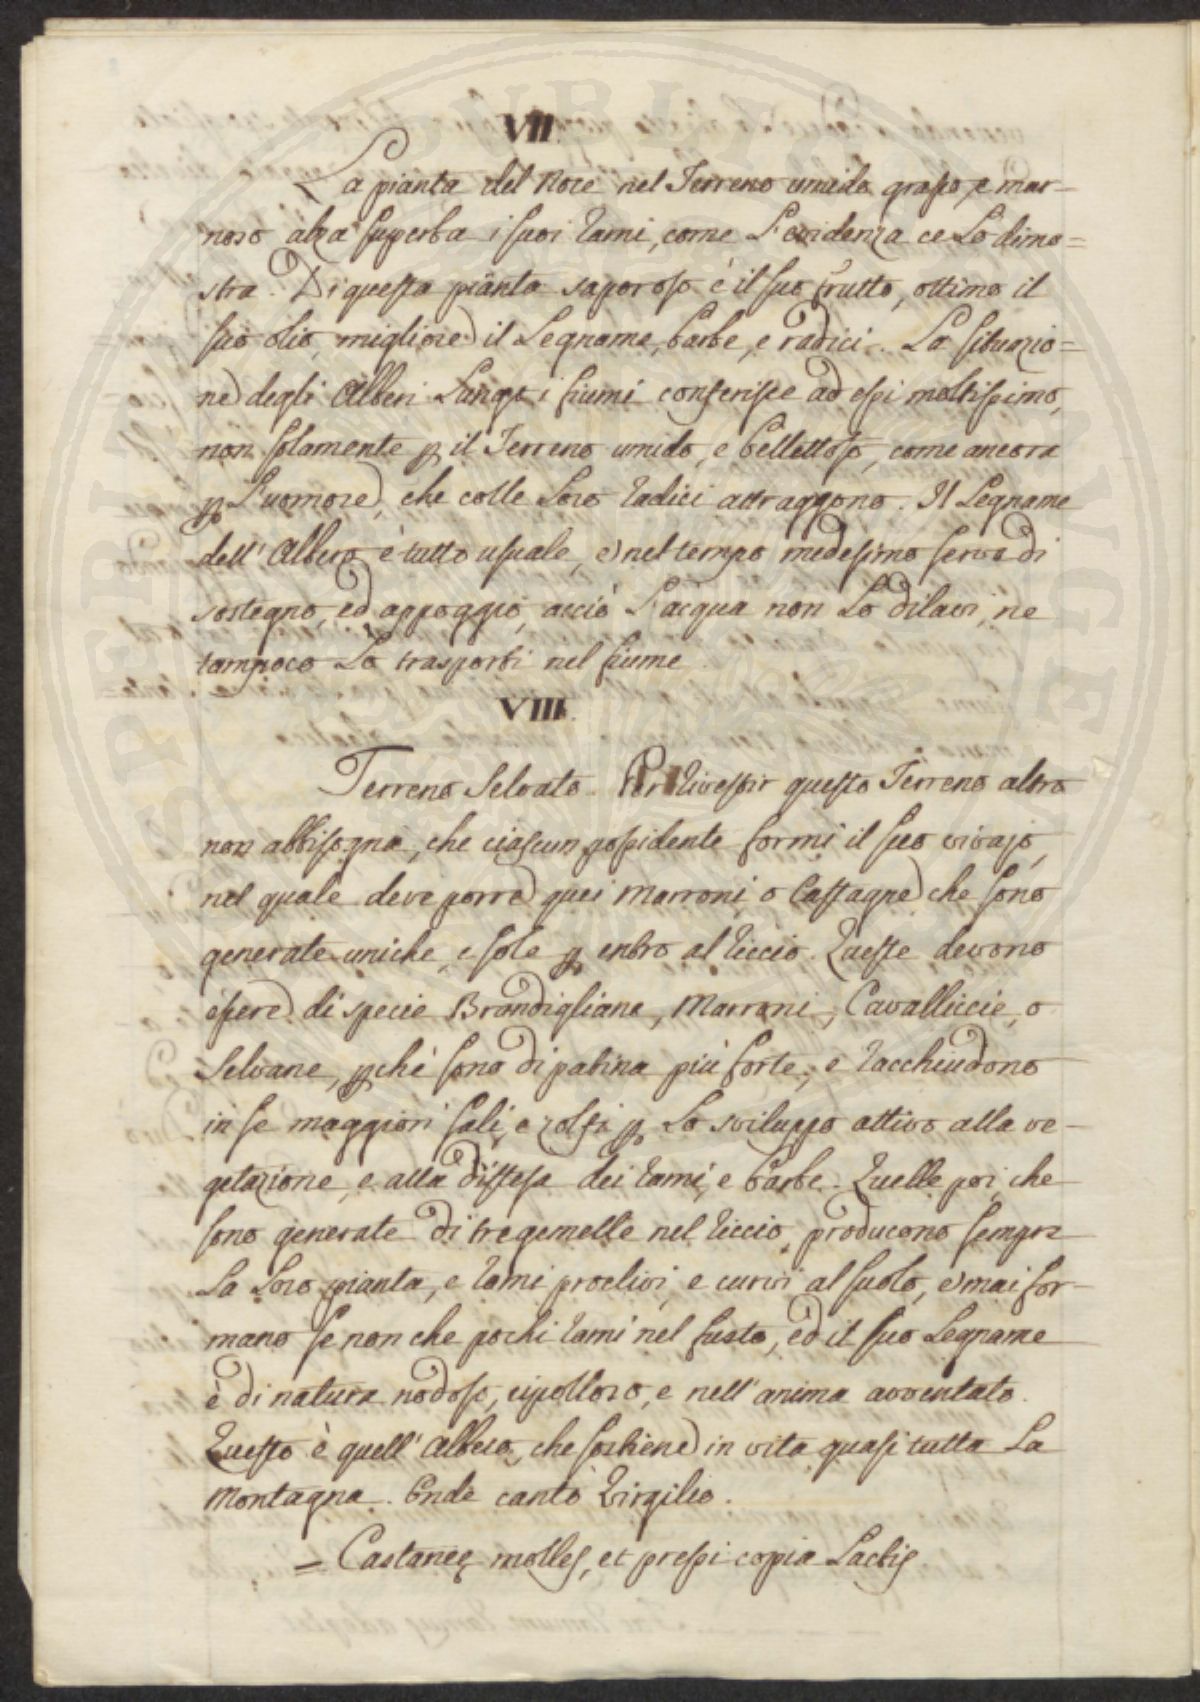 VII.
La pianta del Noce nel Terreno umido grasso, e mar-
noso alza superba i suoi rami, come l'evidenza ce lo dimo=
stra. Di questa pianta saporoso è il suo frutto, ottimo il
suo olio, migliore il Legname, barbe, e radici. La situazio=
ne degli Alberi lungo i fiumi conferisce ad essi moltissimo,
non solamente p il Terreno umido, e bellettoso, come ancora
p l'uomore, che colle loro radici attraggono. Il Legname
dell'Albero è tutto usuale, e nel tempo medesimo serve di
sostegno, ed appoggio, acciò l'acqua non lo dilavi, ne
tampoco lo trasporti nel fiume.
VIII.
Terreno Selvato. Per rivestir questo Terreno altro
non abbisogna, che ciascun possidente formi il suo vivajo,
nel quale deve porre quei Marroni, o Castagne che sono
generate uniche, e sole p entro al riccio. Queste devono
essere di specie Brandigliane, Marroni, Cavalliccie, o
Selvane, pchè sono di patina più forte, e racchiudono
in se maggiori sali, e zolfi p lo sviluppo attivo alla ve-
getazione, e alla distesa dei rami, e barbe. Quelle poi, che
sono generate di tre gemelle nel riccio, producono sempre
la loro pianta, e rami proclivi, e curvi al suolo, e mai for-
mano se non che pochi rami nel fusto, ed il suo Legname
è di natura nodoso, cipolloso, e nell'anima avventato.
Questo è quell'Albero, che sostiene in vita quasi tutta la
Montagna. Onde cantò Virgilio.
= Castaneę molles, et pressi copia lactis.
SPERITA PUBLICA VIGET